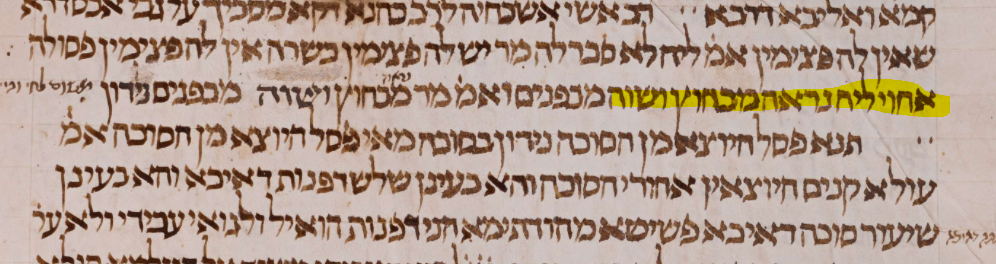 קמא ואליבא דרבא רב אשי אשכחיה לרב כהנא דקא מסכיך על גבי אכסדרא
שאין לה פצימין אמ׳ ליה לא סבר לה מר יש לה פצימין כשרה אין לה פצימין פסולה
אחוי ליה נראה מבחוץ ושוה מבפנים ואמ׳ מר נראה מבחוץ ושוה מבפנים נידון
תנא פסל היוצא מן הסוכה נידון בסוכה מאי פסל היוצא מן הסוכה אמ׳
עולא קנים היוצאין אחורי הסוכה והא בעינן שלש דפנות דאיכא והא בעינן
שיעור סוכה דאיכא פשיטא מהו דתימא הני דפנות הואיל ולגואי עבידי ולא